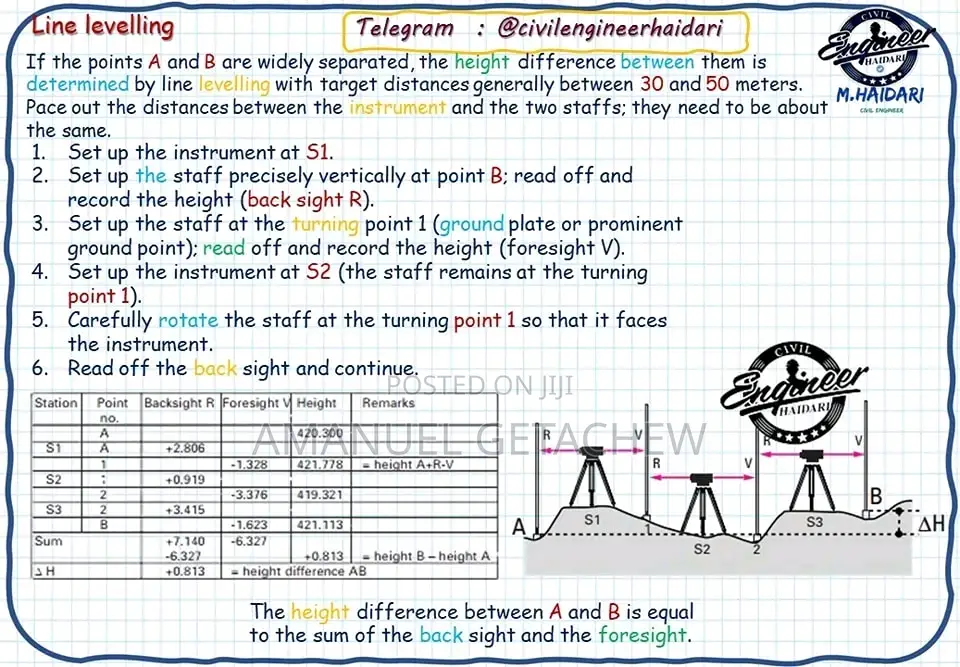 Line levelling
Telegram : @civilengineerhaidari
CIVIL
Engineer
HAIDARI
M.HAIDARI
CIVIL ENGINEER
If the points A and B are widely separated, the height difference between them is
determined by line levelling with target distances generally between 30 and 50 meters.
Pace out the distances between the instrument and the two staffs; they need to be about
the same.
1. Set up the instrument at S1.
2. Set up the staff precisely vertically at point B; read off and
record the height (back sight R).
3. Set up the staff at the turning point 1 (ground plate or prominent
ground point); read off and record the height (foresight V).
4. Set up the instrument at S2 (the staff remains at the turning
point 1).
5. Carefully rotate the staff at the turning point 1 so that it faces
the instrument.
6. Read off the back sight and continue.
POSTED ON JIJI
AMANUEL GETACHEW
Station Point Backsight R Foresight V Height Remarks
no.
A 420.300
S1 A +2.806
1 -1.328 421.778 = height A+R-V
S2 1 +0.919
2 -3.376 419.321
S3 2 +3.415
B -1.623 421.113
Sum +7.140 -6.327
-6.327 +0.813 = height B – height A
Δ H +0.813 = height difference AB
CIVIL
Engineer
HAIDARI
R V
R V
R V
A S1 1 S2 2 S3 B ΔH
The height difference between A and B is equal
to the sum of the back sight and the foresight.